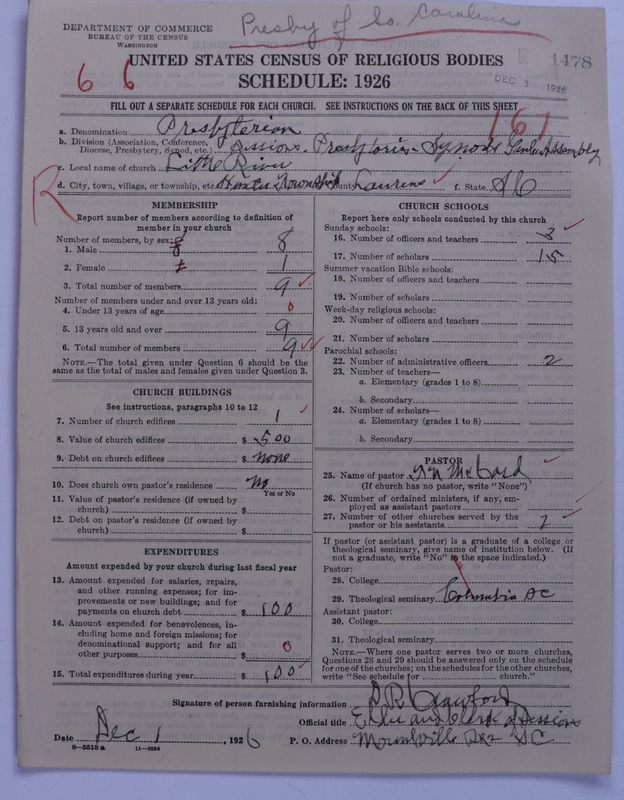 Presby of So. Carolina
DEPARTMENT OF COMMERCE
BUREAU OF THE CENSUS
WASHINGTON
1478
DEC 3 1926
UNITED STATES CENSUS OF RELIGIOUS BODIES
6 6
SCHEDULE: 1926
FILL OUT A SEPARATE SCHEDULE FOR EACH CHURCH. SEE INSTRUCTIONS ON THE BACK OF THIS SHEET
161
a. Denomination Presbyterian
b. Division (Association, Conference, Diocese, Presbytery, Synod, etc.) Sessions - Presbyteries - Synods Genl Assembly
c. Local name of church Little River
d. City, town, village, or township, etc. Hunter Township County Laurens f. State SC
R
MEMBERSHIP
Report number of members according to definition of
member in your church
Number of members, by sex:
1. Male 8
2. Female 1
3. Total number of members 9
Number of members under and over 13 years old:
4. Under 13 years of age 0
5. 13 years old and over 9
6. Total number of members 9
NOTE.—The total given under Question 6 should be the
same as the total of males and females given under Question 3.
CHURCH BUILDINGS
See instructions, paragraphs 10 to 12
7. Number of church edifices 1
8. Value of church edifices $ 500
9. Debt on church edifices $ none
10. Does church own pastor's residence No
Yes or No
11. Value of pastor's residence (if owned by
church) $
12. Debt on pastor's residence (if owned by
church) $
EXPENDITURES
Amount expended by your church during last fiscal year
13. Amount expended for salaries, repairs,
and other running expenses; for im-
provements or new buildings; and for
payments on church debt $ 100
14. Amount expended for benevolences, in-
cluding home and foreign missions; for
denominational support; and for all
other purposes $ 0
15. Total expenditures during year $ 100
CHURCH SCHOOLS
Report here only schools conducted by this church
Sunday schools:
16. Number of officers and teachers 3
17. Number of scholars 15
Summer vacation Bible schools:
18. Number of officers and teachers
19. Number of scholars
Week-day religious schools:
20. Number of officers and teachers
21. Number of scholars
Parochial schools:
22. Number of administrative officers 2
23. Number of teachers—
a. Elementary (grades 1 to 8)
b. Secondary
24. Number of scholars—
a. Elementary (grades 1 to 8)
b. Secondary
PASTOR
25. Name of pastor McCord
(If church has no pastor, write "None")
26. Number of ordained ministers, if any, em-
ployed as assistant pastors
27. Number of other churches served by the
pastor or his assistants 2
If pastor (or assistant pastor) is a graduate of a college or
theological seminary, give name of institution below. (If
not a graduate, write "No" in the space indicated.)
Pastor:
28. College
29. Theological seminary Columbia SC
Assistant pastor:
30. College
31. Theological seminary
NOTE.—Where one pastor serves two or more churches,
Questions 28 and 29 should be answered only on the schedule
for one of the churches; on the schedules for the other churches,
write "See schedule for church."
Signature of person furnishing information D R Crawford
Official title Elder and Clerk of Session
Date Dec 1, 1926 P. O. Address Mountville SC
8-5518 a 11-9264